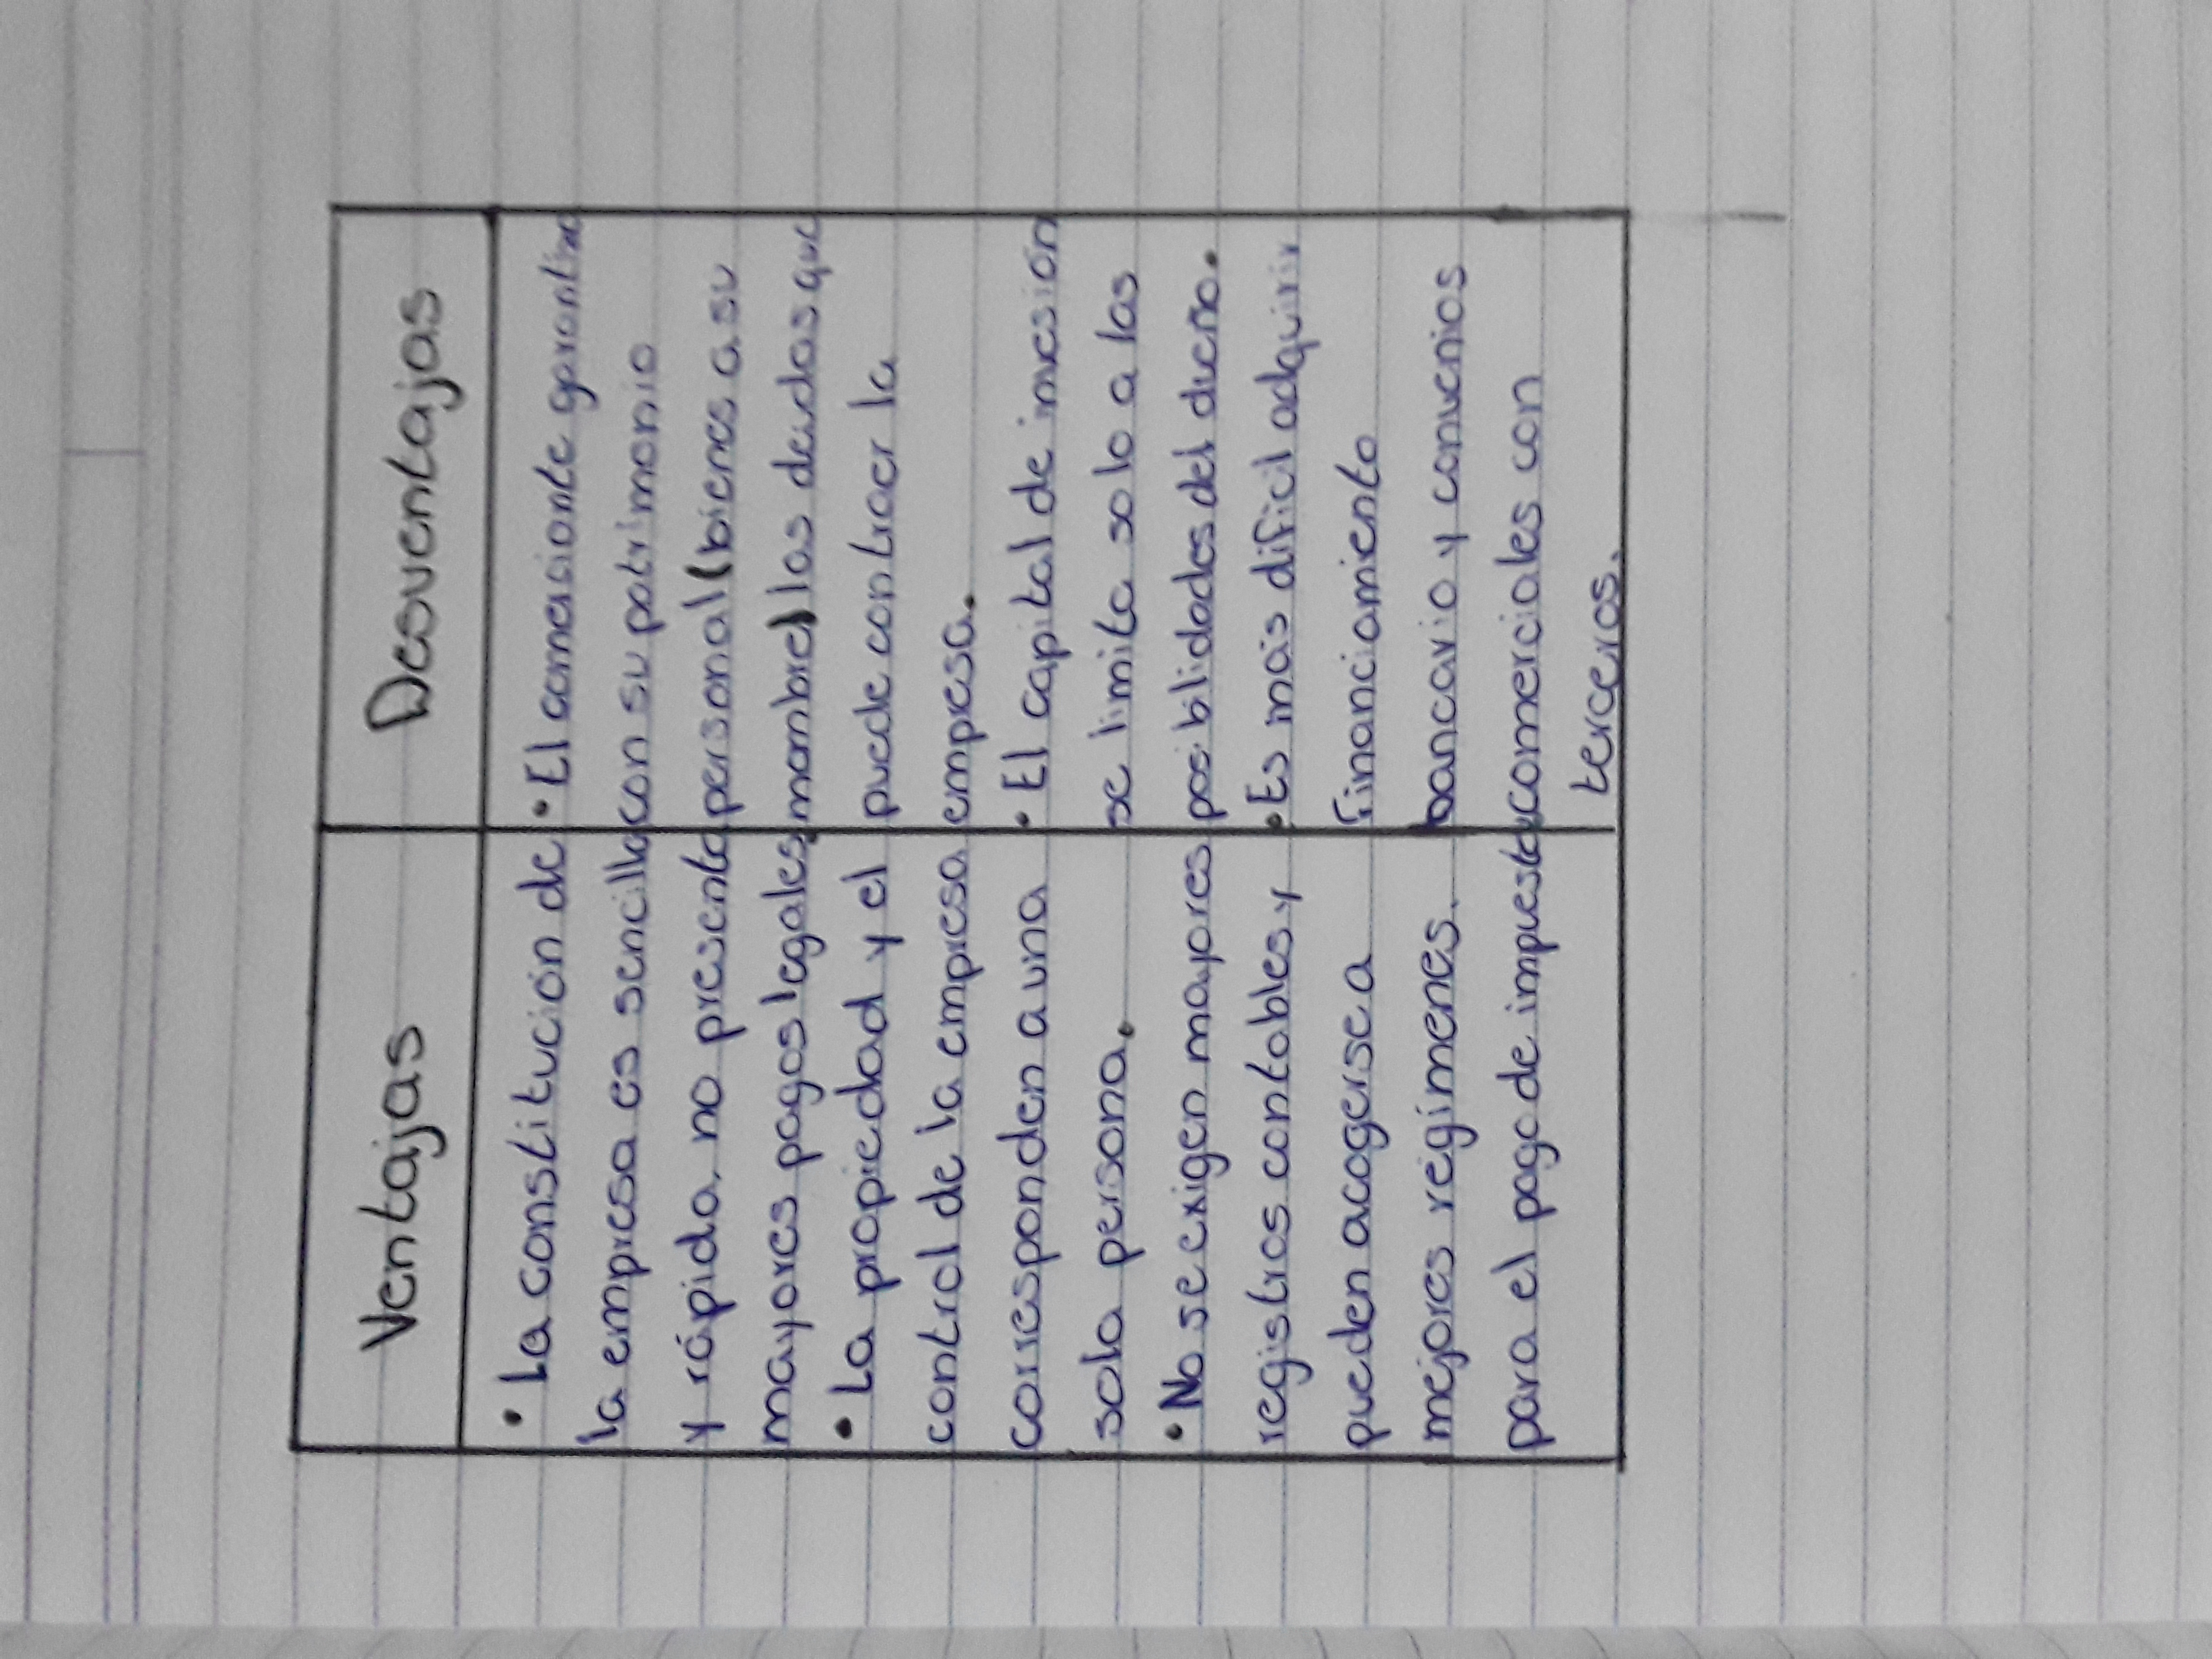 Ventajas
• La constitución de
la empresa es sencilla
y rápida, no presenta
mayores pagos legales.
• La propiedad y el
control de la empresa
corresponden a una
sola persona.
• No se exigen mayores
registros contables y
pueden acogerse a
mejores regímenes
para el pago de impuestos
Desventajas
• El comerciante garantiza
con su patrimonio
personal (bienes a su
nombre) las deudas que
puede contraer la
empresa.
• El capital de inversión
se limita solo a las
posiblidades del dueño.
• Es más dificil adquirir
financiamiento
bancario y convenios
comerciales con
terceros.